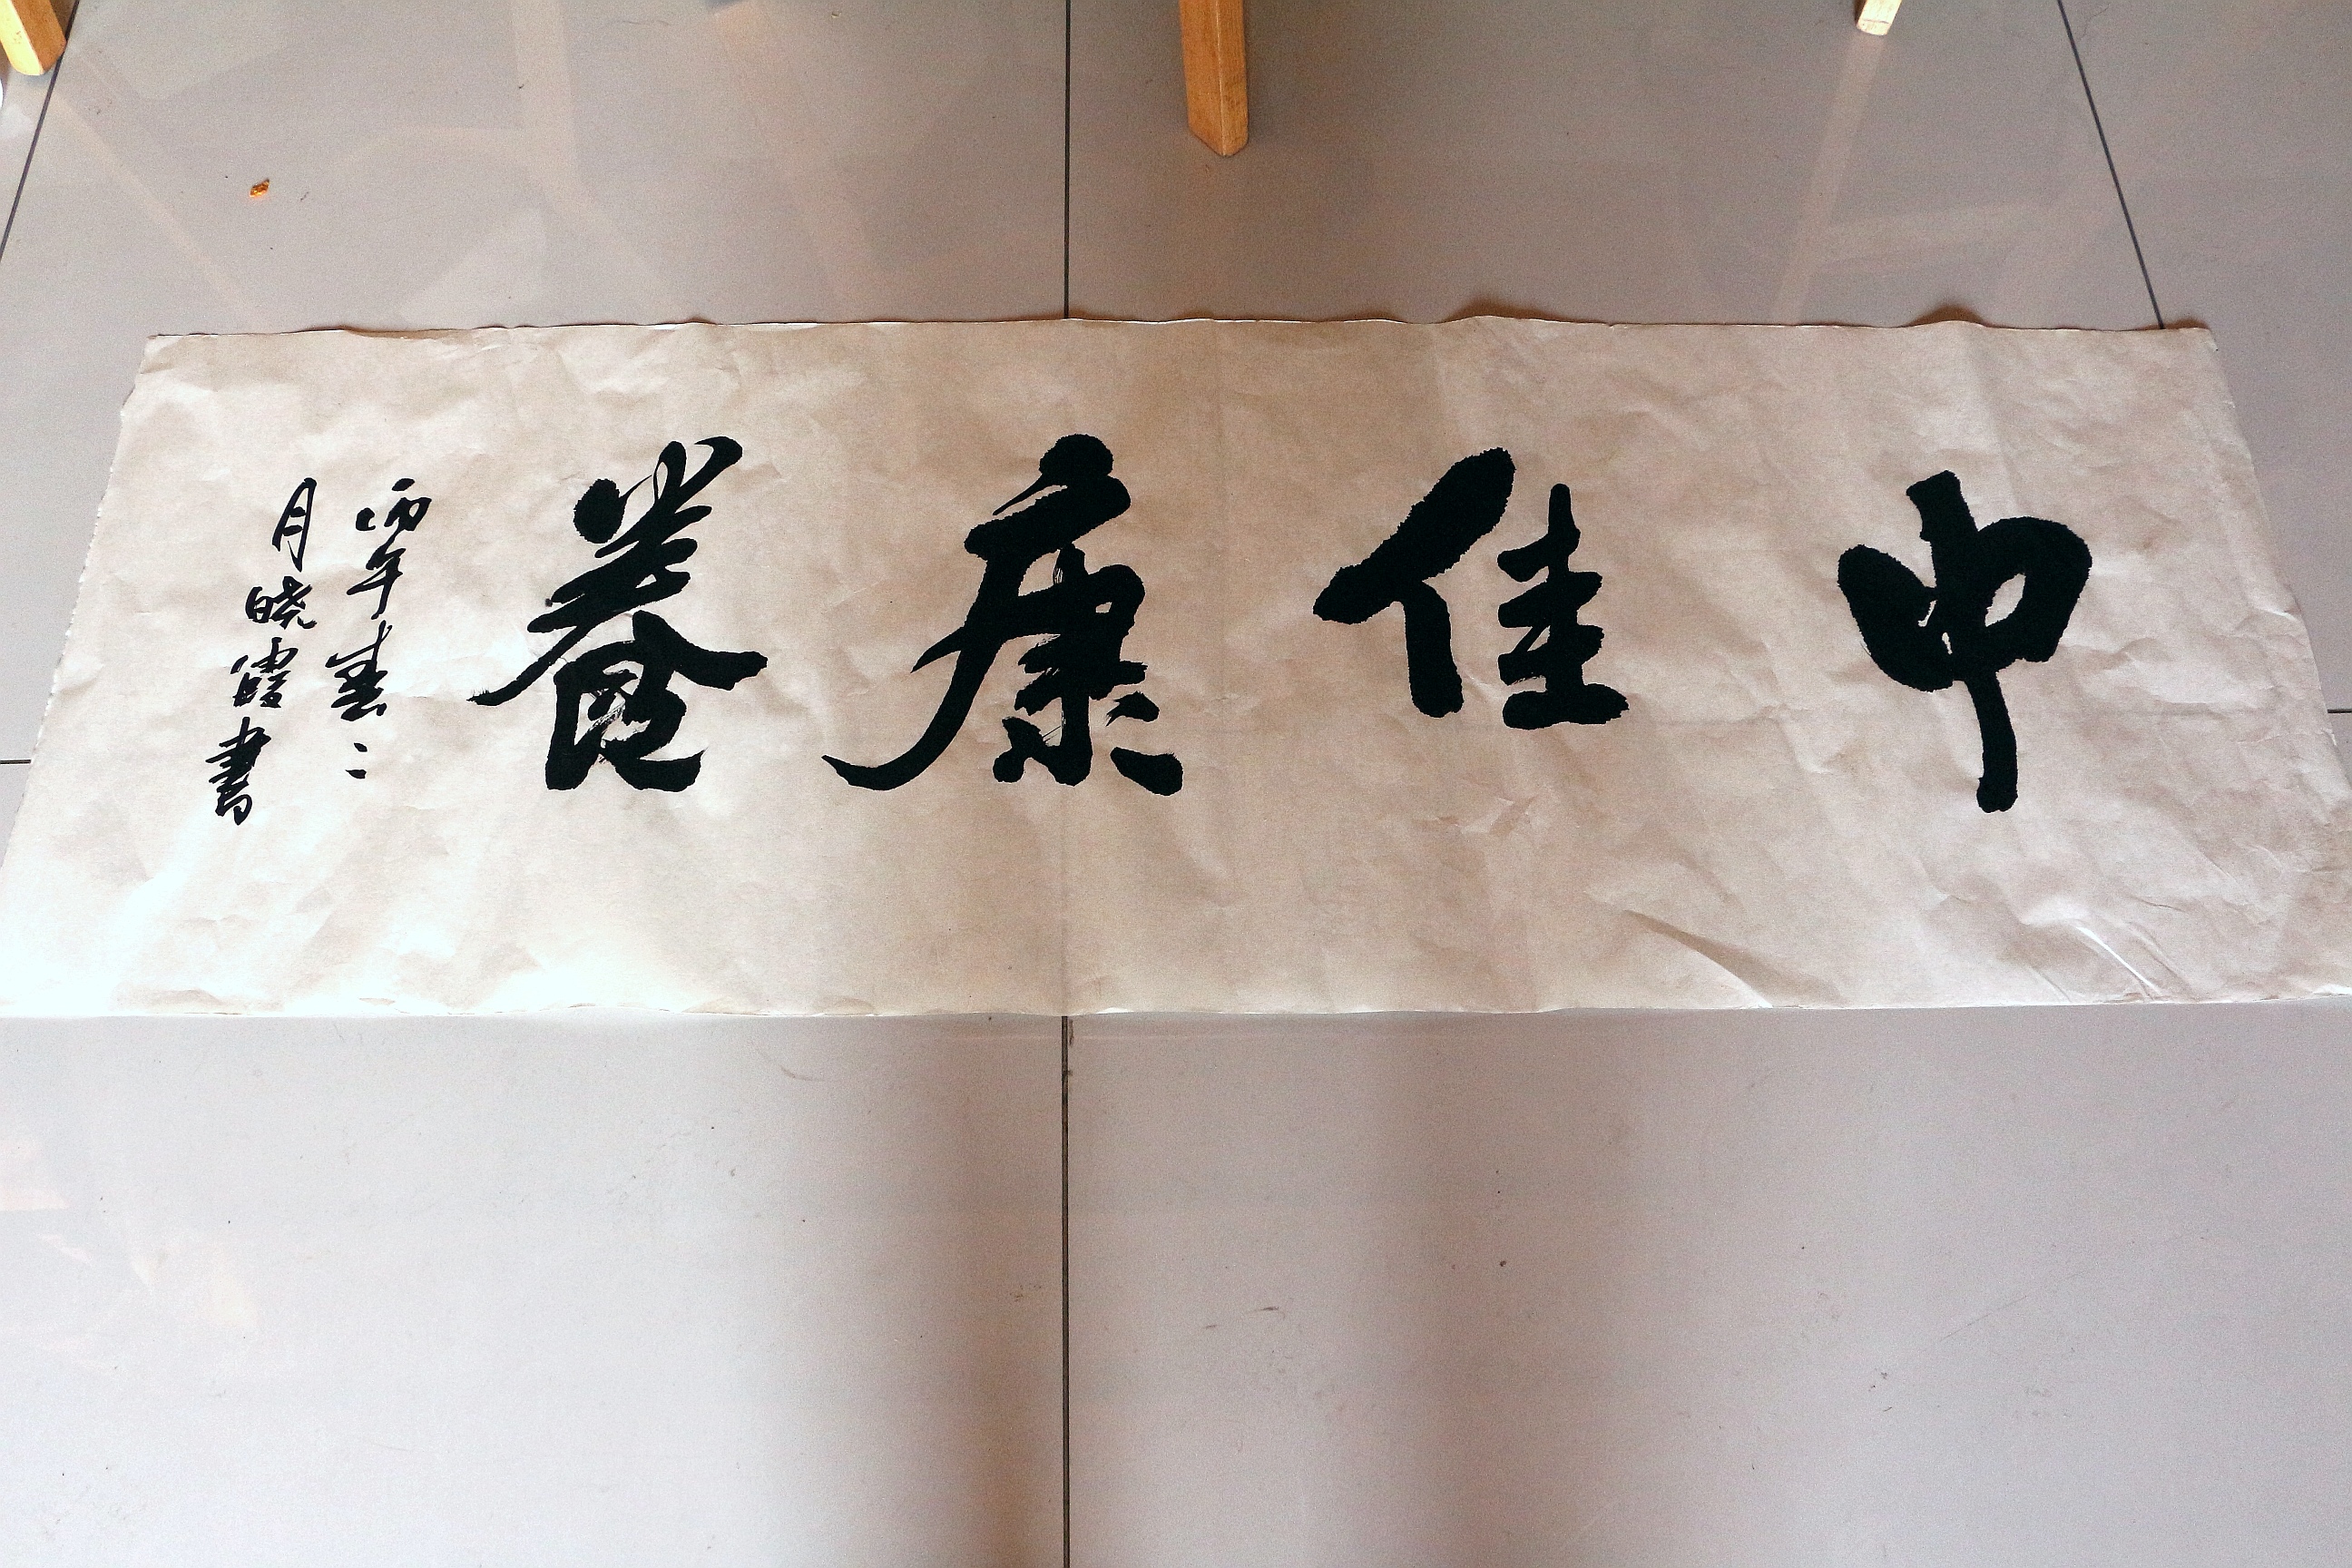 中佳康養
丙午春二
月晓霞書